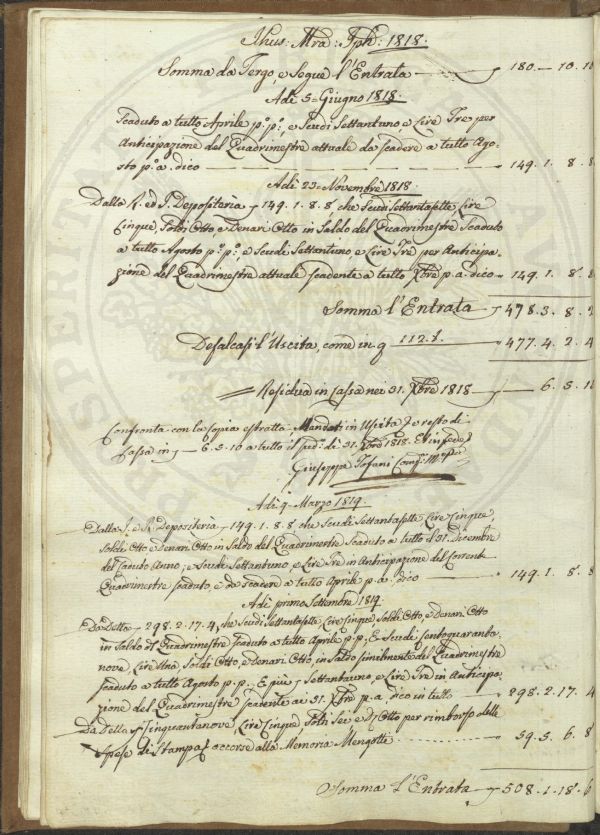 Jhus: Mra: Jph: 1818.
Somma da Tergo e Segue l'Entrata — 180. — 10. 10
Adì 5. Giugno 1818.
Scaduto a tutto Aprile p.° p.°, e Scudi Settantuno, e Lire Tre per
Anticipazione del Quadrimestre attuale da scadere a tutto Ago-
sto p.° a. dico — 149. 1. 8. 8
Adì 23. Novembre 1818.
Dalla R. ed I. Depositeria 149. 1. 8. 8 che Scudi Settantasette, Lire
Cinque, Soldi Otto e Denari Otto in Saldo del Quadrimestre Scaduto
a tutto Agosto p.° p.° e Scudi Settantuno e Lire Tre per Anticipa-
zione del Quadrimestre attuale scadente a tutto Xbre p. a. dico — 149. 1. 8. 8
Somma l'Entrata — 478. 3. 8. 2
Defalcasi l'Uscita, come in 112.t — 477. 4. 2. 4
Residua in Cassa nei 31. Xbre 1818 — 6. 5. 10
Confronta con la Copia estratta Mandati in Uscita e resto di
Cassa in — 6. 5. 10 a tutto il sud.° dì 31. Xbre 1818. E in fede
Giuseppe Tofani
Adì 9. Marzo 1819.
Dalla I. e R. Depositeria — 149. 1. 8. 8 che Scudi Settantasette, Lire Cinque,
Soldi Otto e Denari Otto in Saldo del Quadrimestre Scaduto a tutto il 31. Dicembre
del Caduto Anno; e Scudi Settantuno, e Lire Tre in Anticipazione del Corrente
Quadrimestre scaduto, e da scadere a tutto Aprile p. a. dico — 149. 1. 8. 8
Adì primo Settembre 1819.
Da Detta — 298. 2. 17. 4, che Scudi Settantasette, Lire Cinque, Soldi Otto, e Denari Otto
in Saldo del Quadrimestre Scaduto a tutto Aprile p. p., E Scudi Centoquaranta-
nove, Lire Una Soldi Otto, e Denari Otto, in Saldo similmente del Quadrimestre
Scaduto a tutto Agosto p. p. E più Settantuno, e Lire Tre in Anticipa-
zione del Quadrimestre scadente ai 31. Xbre p. a. dico in tutto — 298. 2. 17. 4
Da Detta Cinquantanove, Lire Cinque Soldi Sei e Otto per rimborso delle
Spese di Stampa occorse alla Memoria Mengotti — 59. 5. 6. 8
Somma l'Entrata — 508. 1. 18. 6